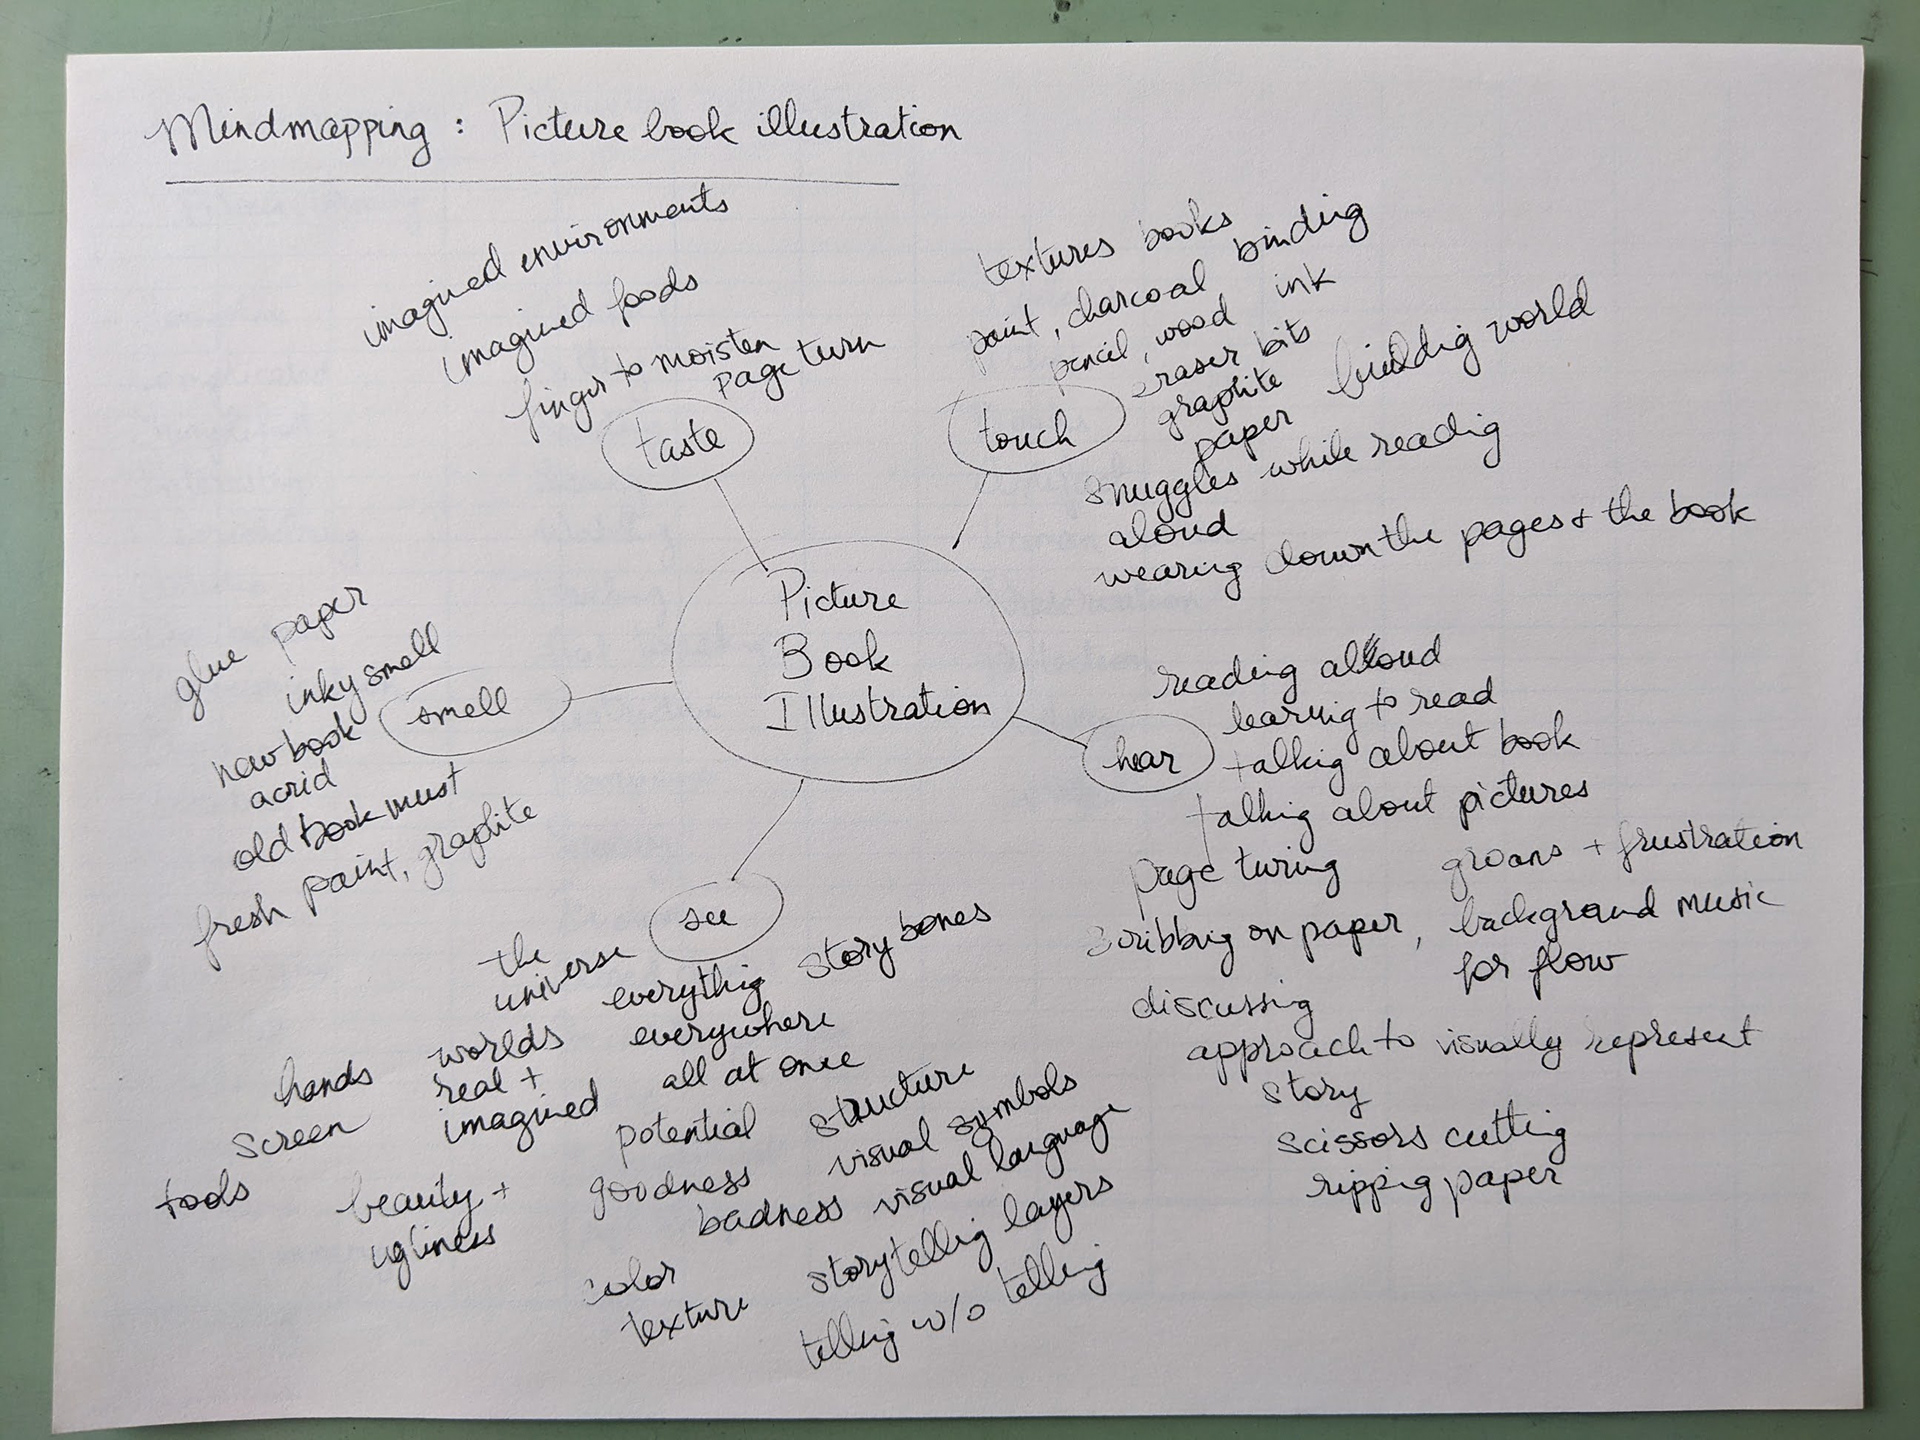 Mindmapping : Picture book illustration
imagined environments
imagined foods
finger to moisten
page turn
taste
textures books
binding
paint, charcoal
ink
pencil, wood
eraser bits
graphite
paper
building world
touch
snuggles while reading
aloud
wearing down the pages + the book
Picture
Book
Illustration
glue paper
inky smell
smell
new book
acrid
old book must
fresh paint, graphite
reading aloud
learnig to read
hear
talking about book
talking about pictures
page turing
groans + frustration
scribbig on paper, background music
for flow
discussing
approach to visually represent
story
scissors cutting
rippig paper
see
the
universe
everything
story bones
hands
worlds
everywhere
real +
imagined
all at once
screen
potential
structure
tools
beauty +
ugliness
goodness
visual symbols
badness
visual language
color
texture
storytellig layers
tellig w/o telling